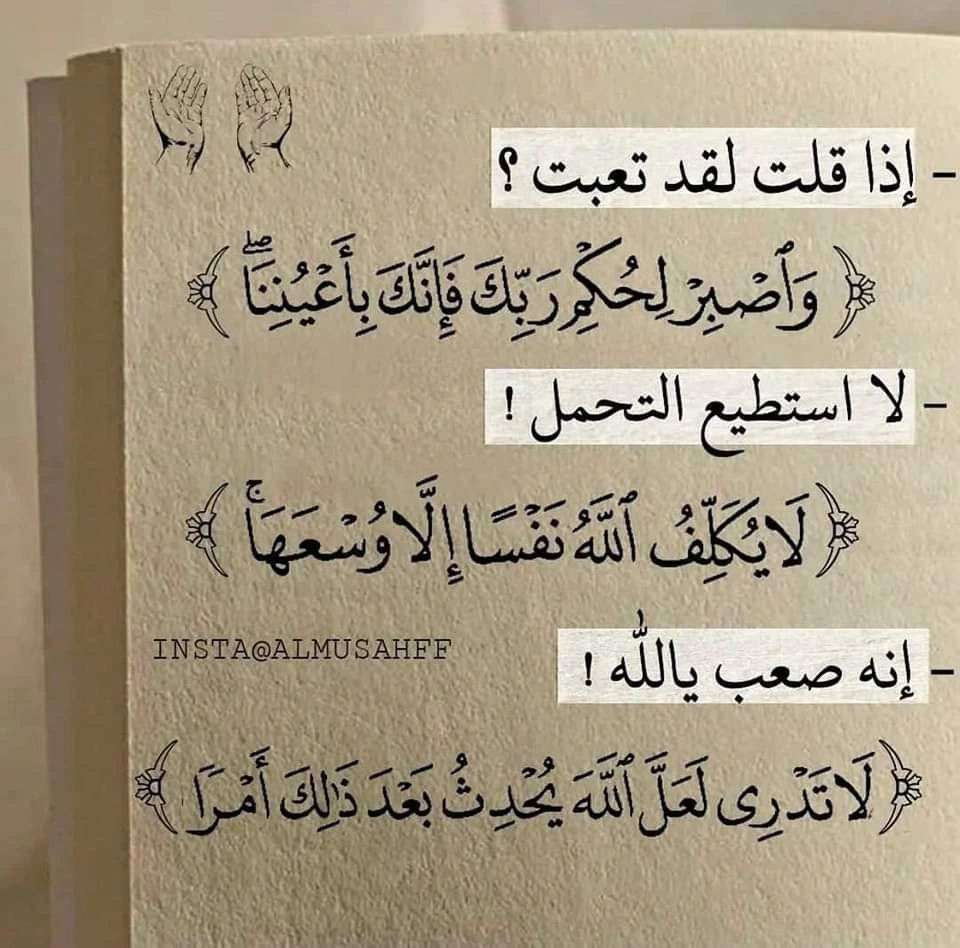 - إذا قلت لقد تعبت ؟
﴿ وَٱصْبِرْ لِحُكْمِ رَبِّكَ فَإِنَّكَ بِأَعْيُنِنَاۖ ﴾
- لا استطيع التحمل !
﴿ لَا يُكَلِّفُ ٱللَّهُ نَفْسًا إِلَّا وُسْعَهَاۚ ﴾
INSTA@ALMUSAHFF
- إنه صعب يالله !
﴿ لَا تَدْرِى لَعَلَّ ٱللَّهَ يُحْدِثُ بَعْدَ ذَٰلِكَ أَمْرًا ﴾